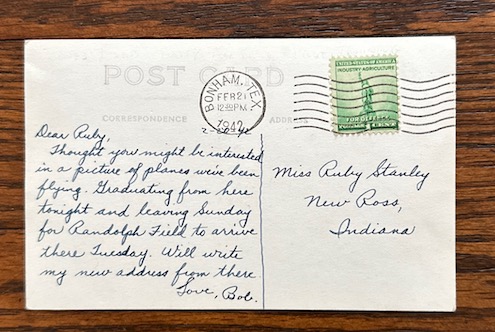 POST CARD
BONHAM, TEX.
FEB 21
12:30 PM
1942
UNITED STATES OF AMERICA
INDUSTRY AGRICULTURE
FOR DEFENSE
1 CENT
CORRESPONDENCE
ADDRESS
Dear Ruby,
Thought you might be interested
in a picture of planes we've been
flying. Graduating from here
tonight and leaving Sunday
for Randolph Field to arrive
there Tuesday. Will write
my new address from there
Love, Bob.
Miss Ruby Stanley
New Ross,
Indiana